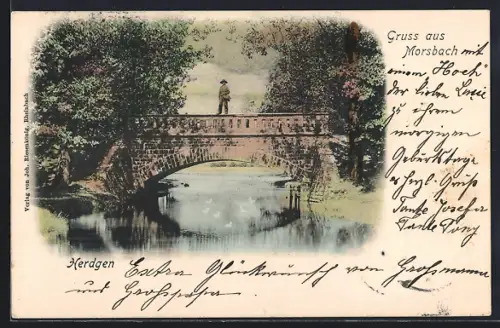 Gruss aus
Morsbach mit
einem "Hoch"
der lieben Lucie
zu ihrem
morgigen
Geburtstage
u herzl. Gruß
Tante Josefa
Tante Tony
Herdgen
Extra Glückwünsch von Großmama
und Großpapa
Verlag von Joh. Eisenkönig, Rheinbach